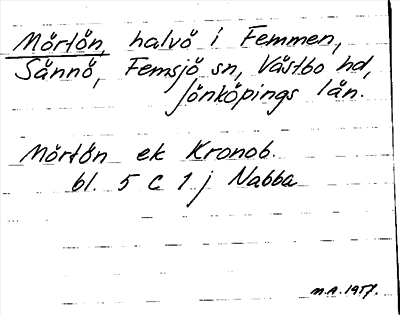 Mörtön, halvö i Femmen,
Sånnö, Femsjö sn, Västbo hd,
Jönköpings län.
Mörtön ek Kronob.
bl. 5 C 1 j Nabba
M.A. 1957.